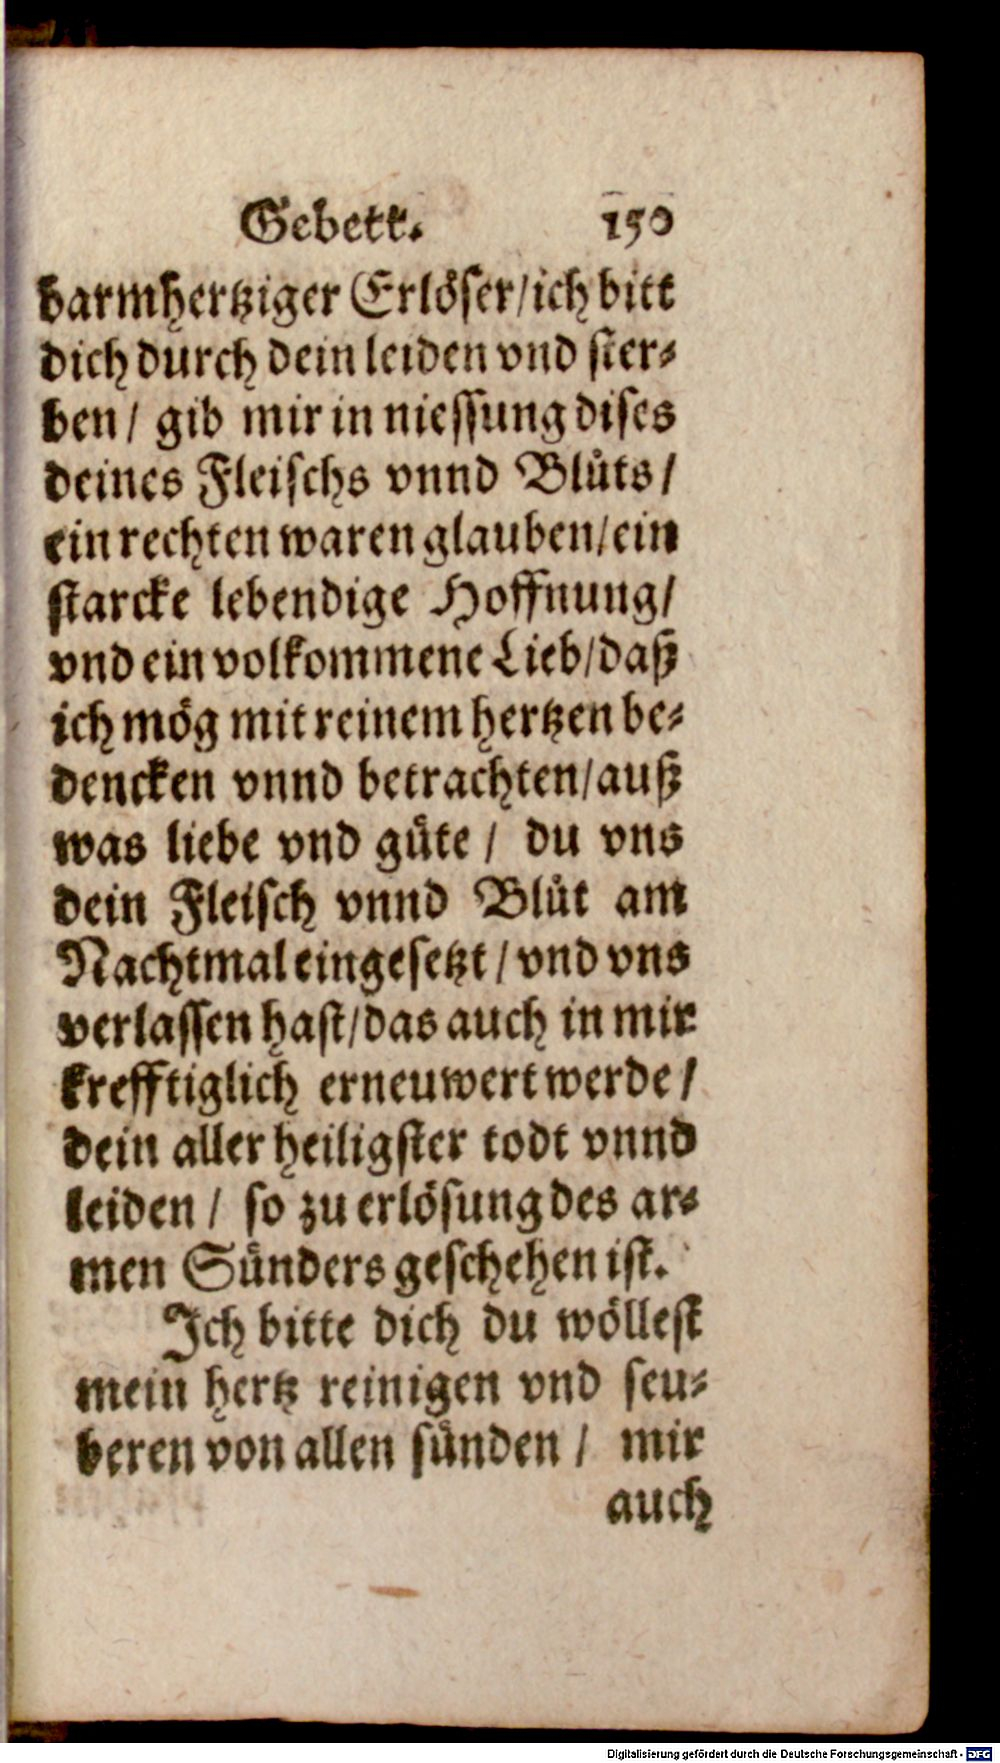 Gebett. 150
barmhertziger Erlöser/ich bitt
dich durch dein leiden vnd ster⸗
ben/ gib mir in niessung dises
deines Fleischs vnnd Blůts/
ein rechten waren glauben/ein
starcke lebendige Hoffnung/
vnd ein volkommene Lieb/daß
ich mög mit reinem hertzen be⸗
dencken vnnd betrachten/auß
was liebe vnd güte/ du vns
dein Fleisch vnnd Blůt am
Nachtmal eingesetzt/vnd vns
verlassen hast/das auch in mir
krefftiglich erneuwert werde/
dein aller heiligster todt vnnd
leiden/ so zu erlösung des ar⸗
men Sünders geschehen ist.
Ich bitte dich du wöllest
mein hertz reinigen vnd seu⸗
beren von allen sünden/ mir
auch
Digitalisierung gefördert durch die Deutsche Forschungsgemeinschaft - DFG